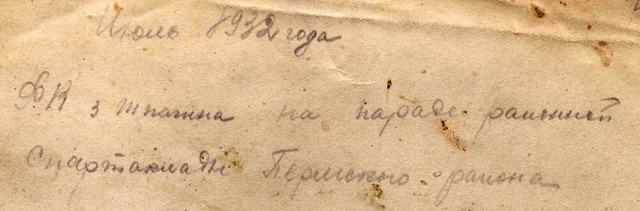 Июль 1932 года
ФК з
на параде районной
Спартакиады Пермского района